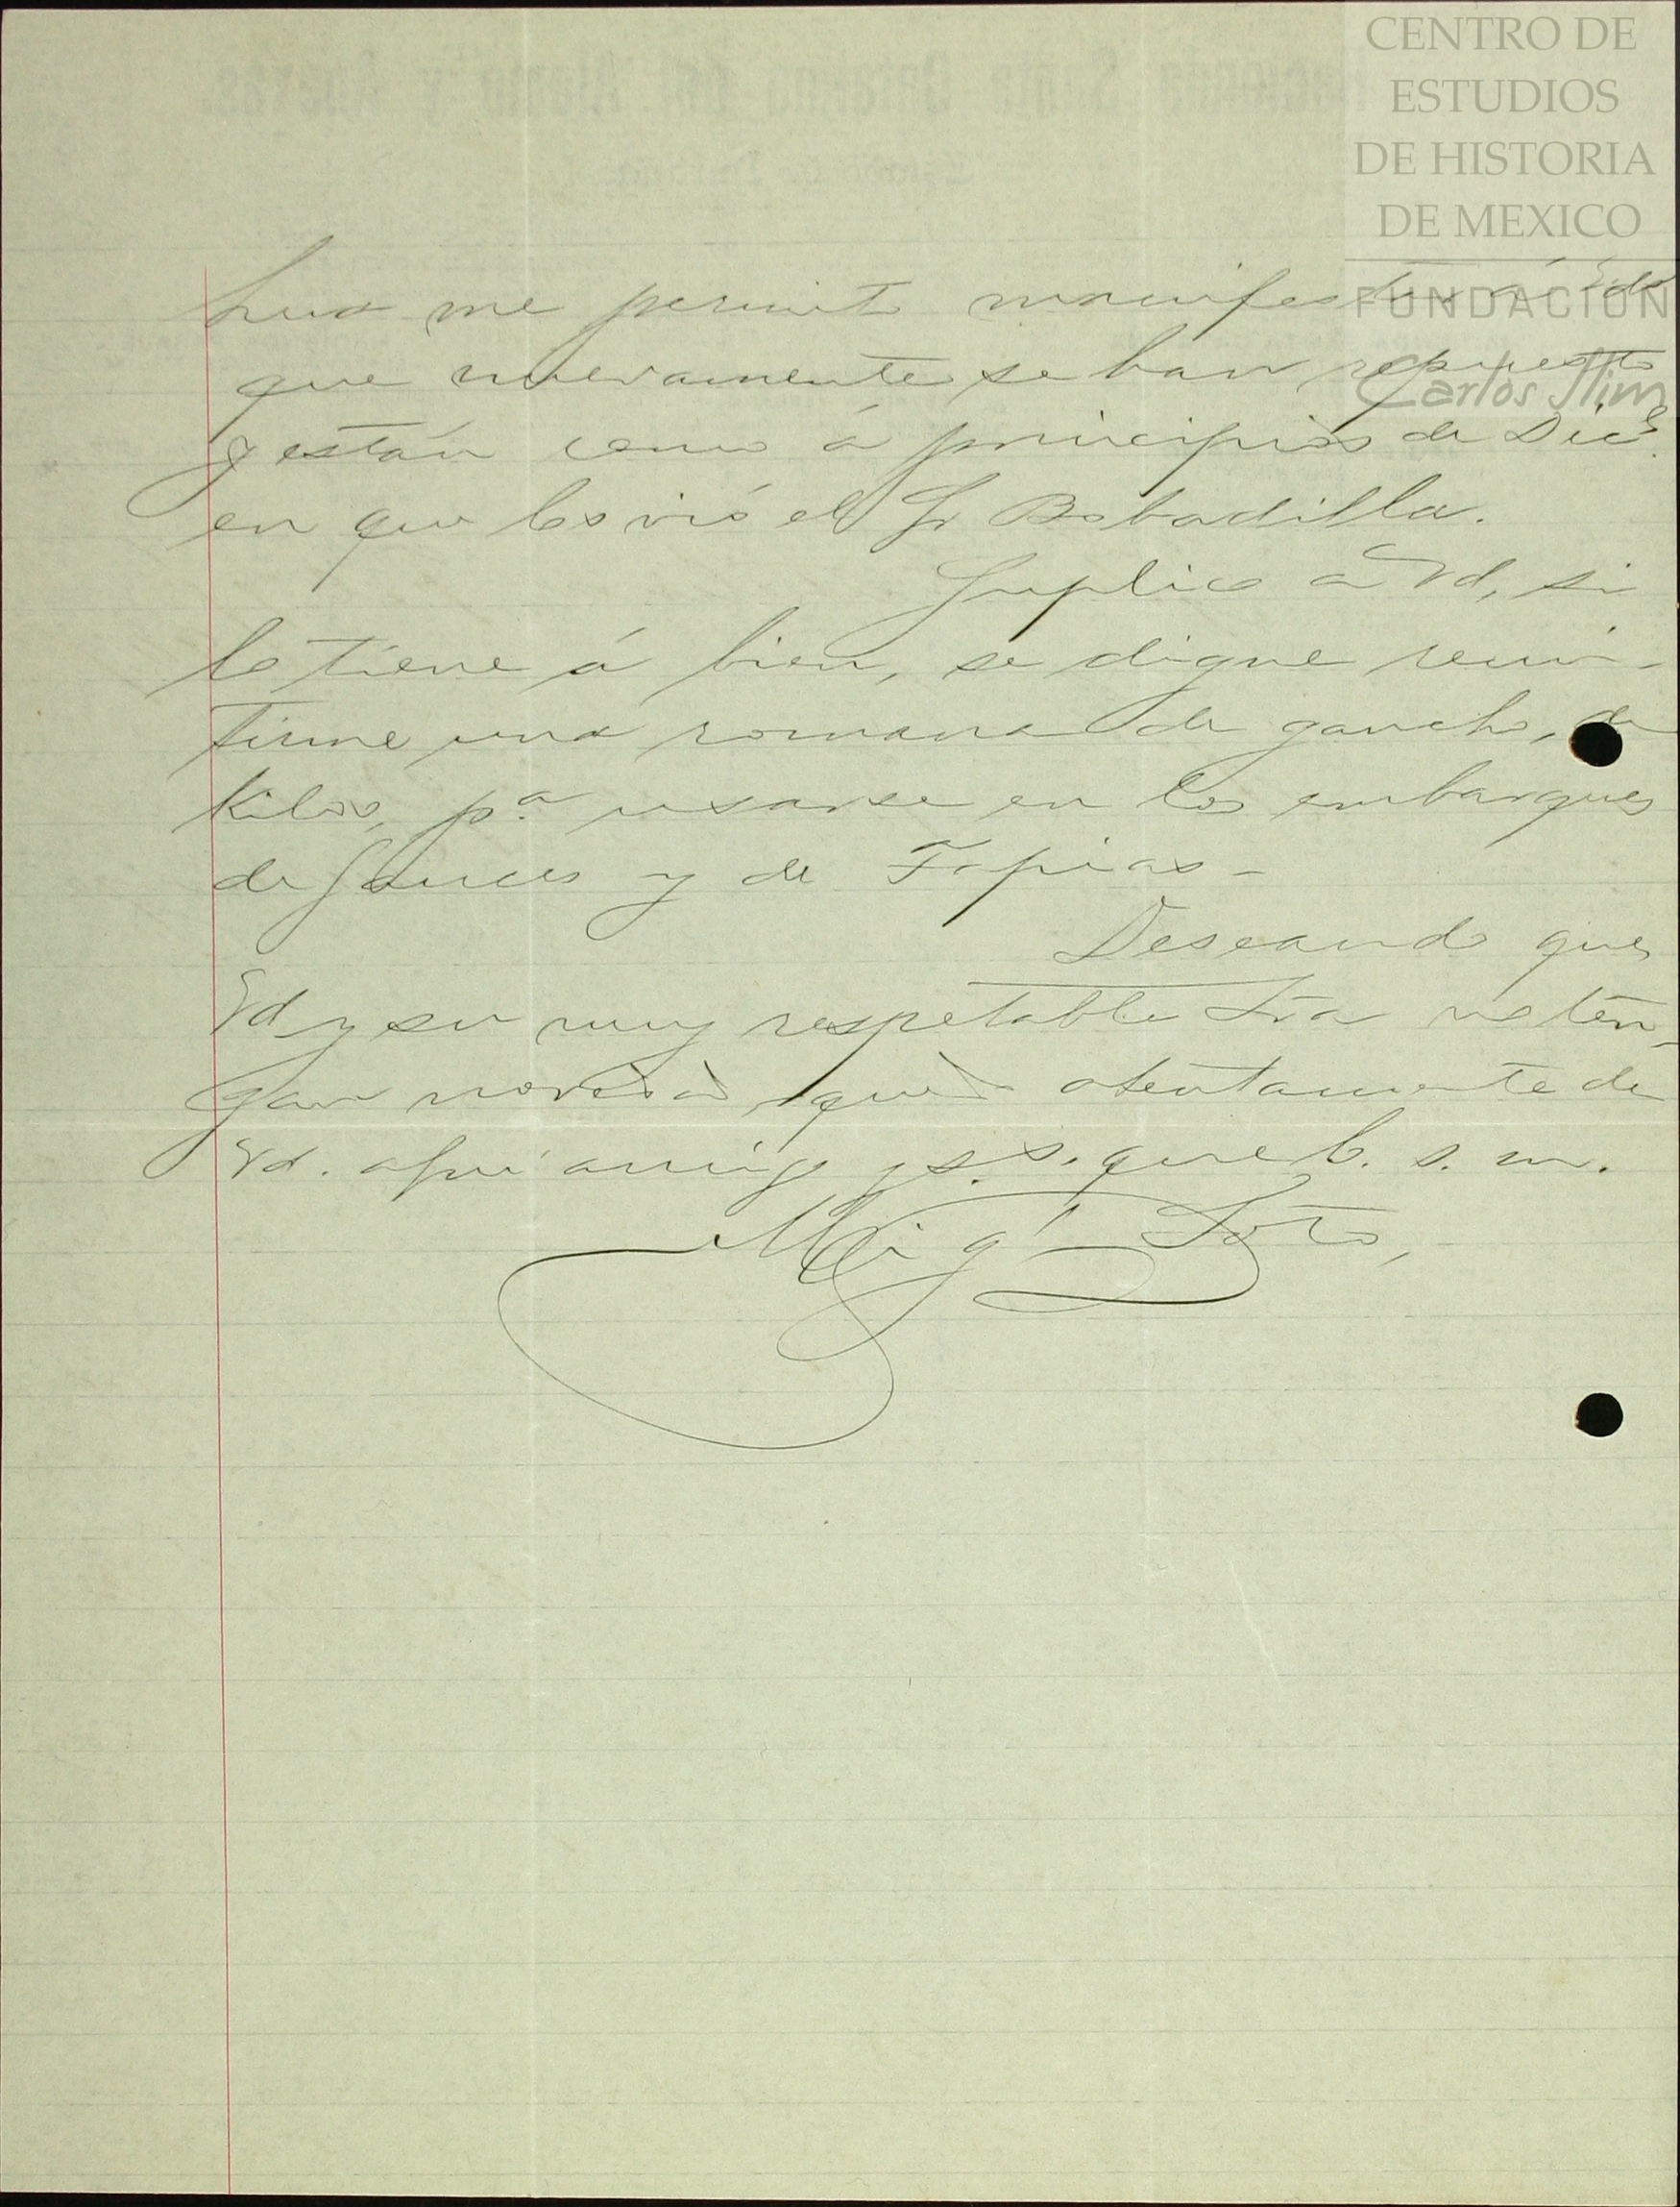 CENTRO DE
ESTUDIOS
DE HISTORIA
DE MEXICO
FUNDACIÓN
Carlos Slim
me permito manifestar á Vd
que nuevamente se han repuesto
y están como á principios de Dice
en que los vió el Sr Bobadilla.
Suplico á Vd, si
lo tiene á bien, se digne remi-
tirme una romana de gancho, de
kilos, pa usarse en los embarques
de Sauces y de Tapias-
Deseando que
Vd y su muy respetable Sra no ten-
gan novedad, quedo atentamente de
Vd. afmo amigo y s. s. que b. s. m.
Migl Soto,